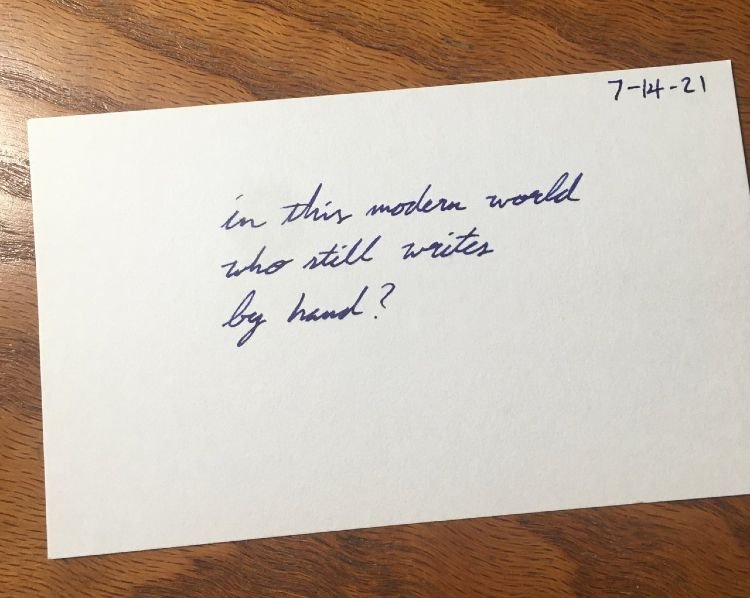 7-14-21
in this modern world
who still writes
by hand?